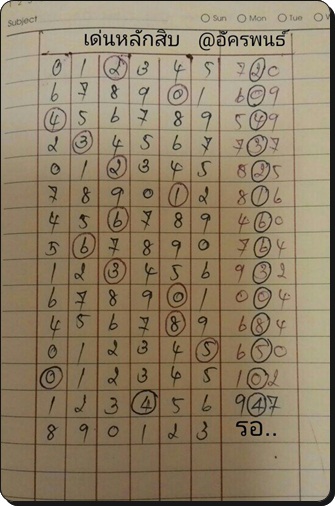 Subject ○ Sun ○ Mon ○ Tue ○
เด่นหลักสิบ @อัครพนธ์
0 1 2 3 4 5 720
6 7 8 9 0 1 609
4 5 6 7 8 9 549
2 3 4 5 6 7 737
0 1 2 3 4 5 825
7 8 9 0 1 2 816
4 5 6 7 8 9 460
5 6 7 8 9 0 764
1 2 3 4 5 6 932
6 7 8 9 0 1 004
4 5 6 7 8 9 684
0 1 2 3 4 5 650
0 1 2 3 4 5 102
1 2 3 4 5 6 947
8 9 0 1 2 3 รอ..